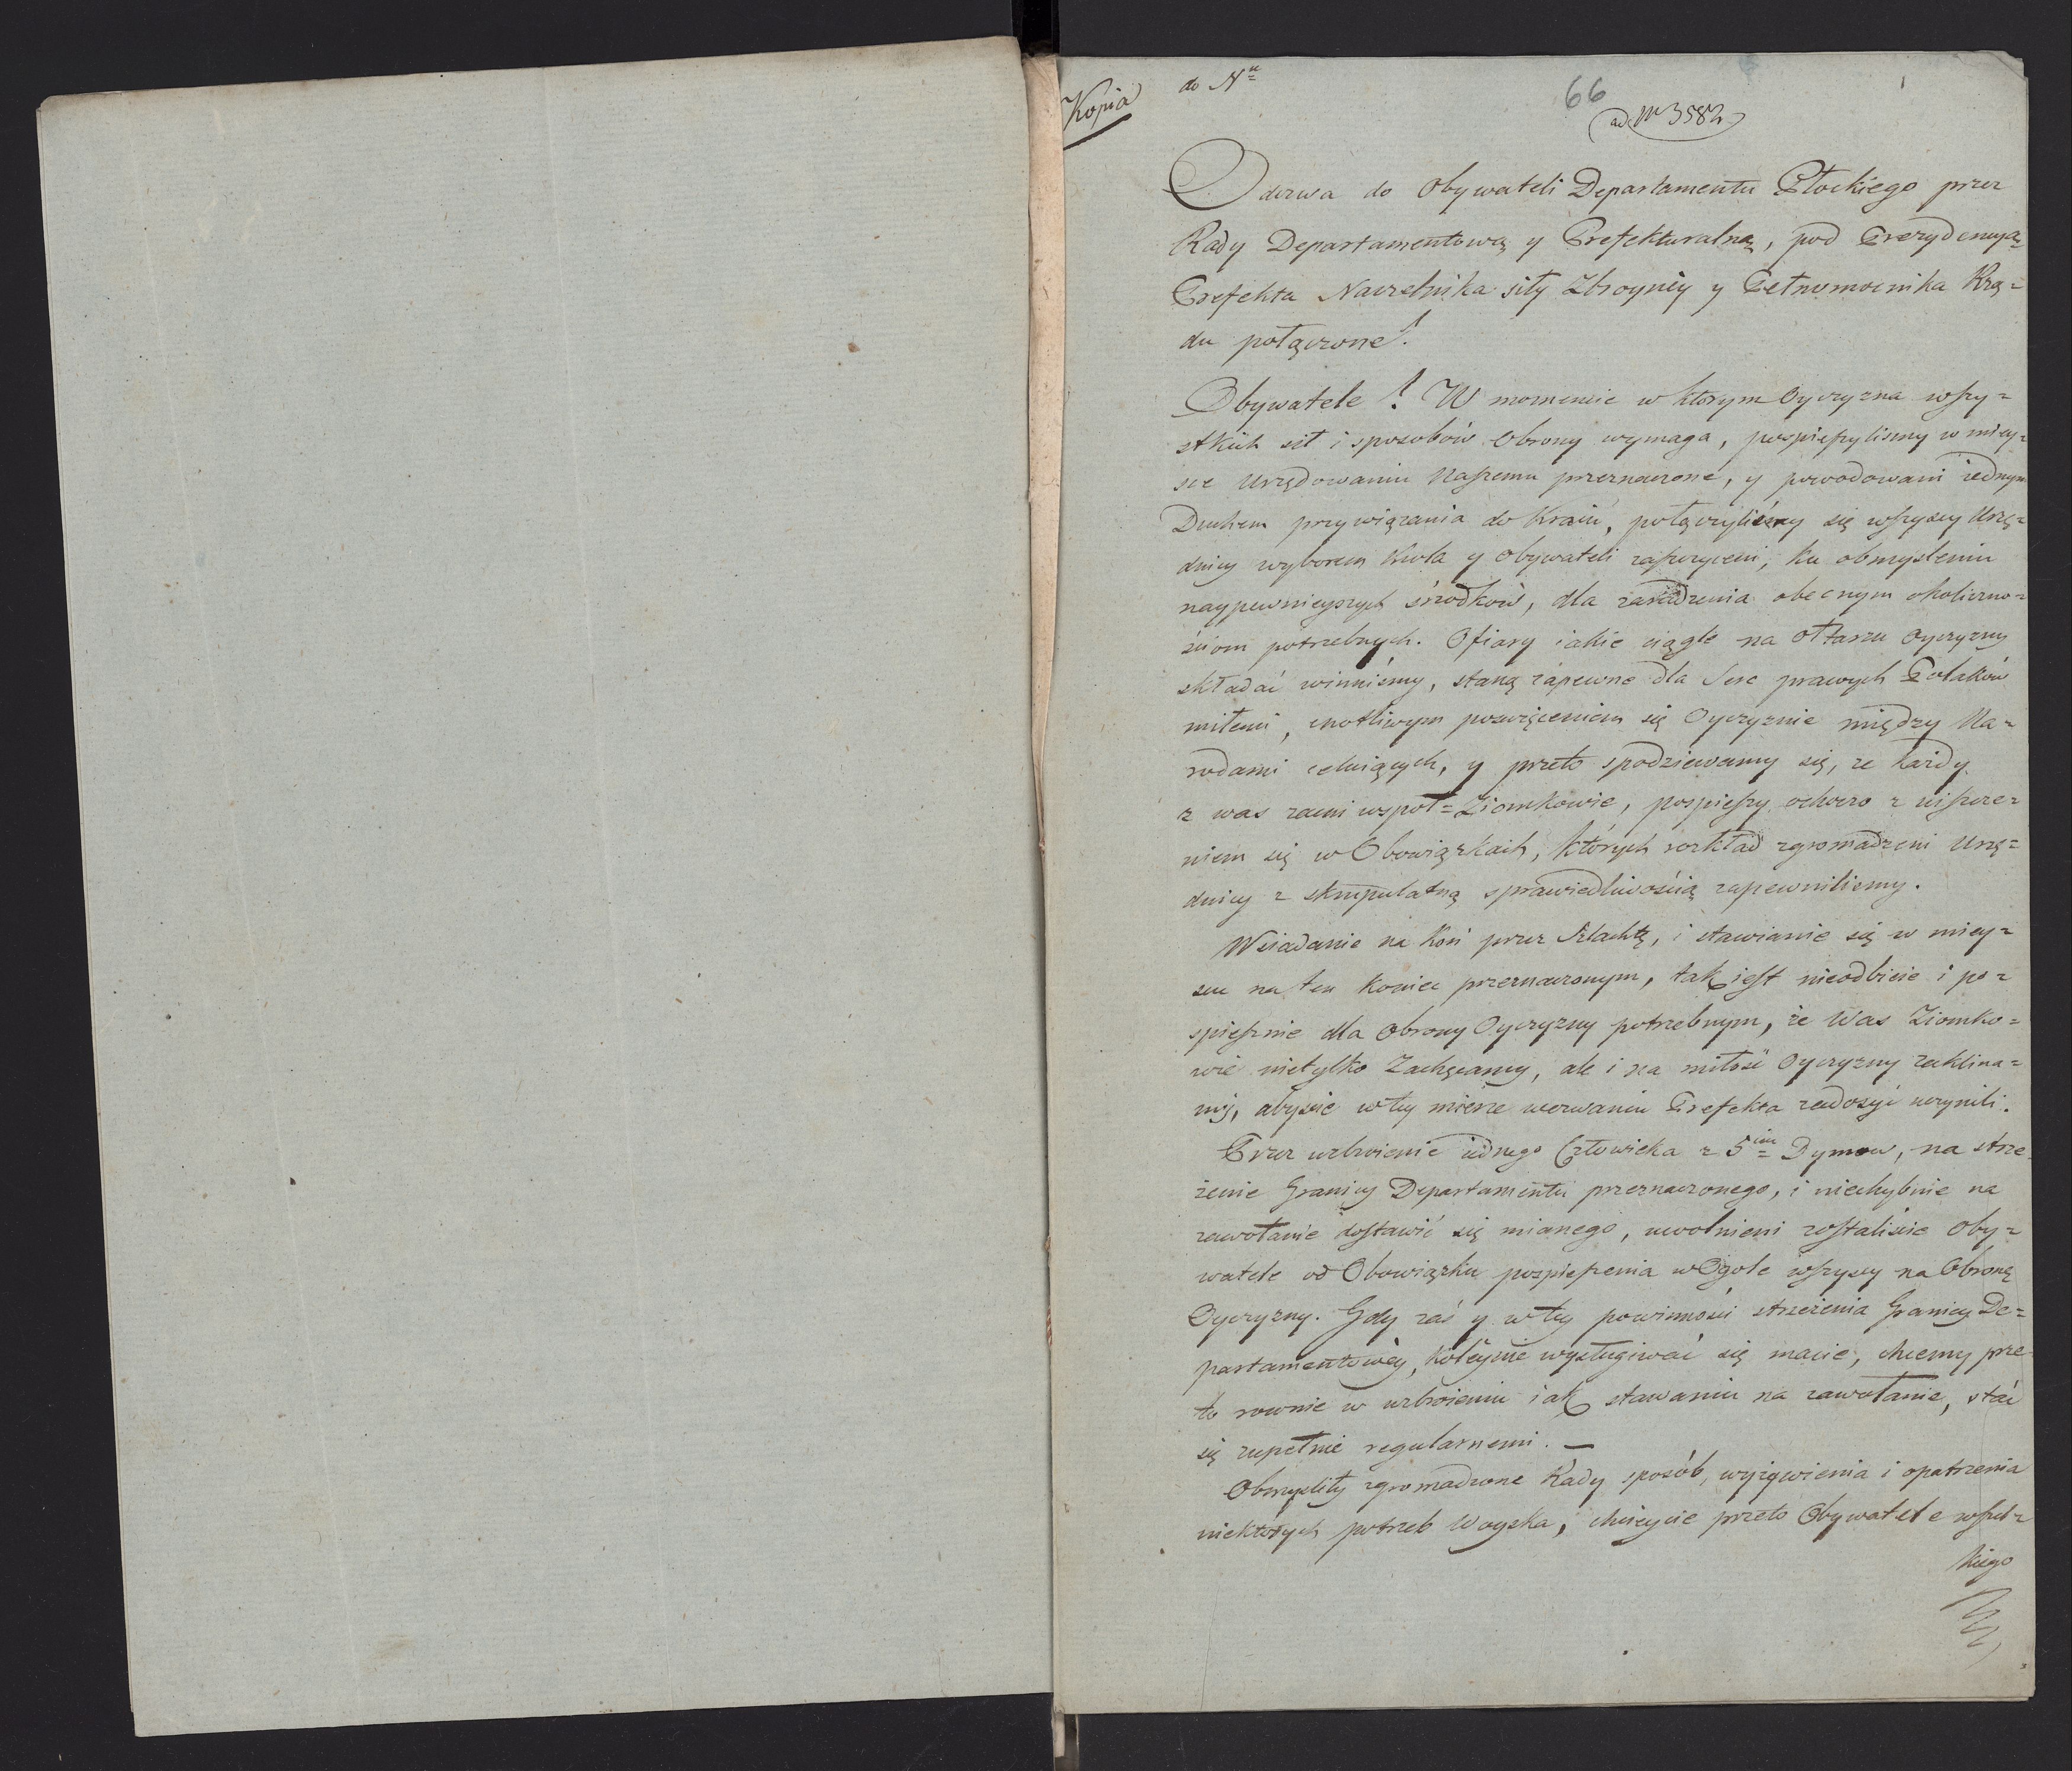 Kopia
do Nu
66
ad Nr 3582
Odezwa do Obywateli Departamentu Płockiego przez
Rady Departamentową y Prefekturalną, pod Prezydencyą
Prefekta Naczelnika siły Zbroyney y Pełnomocnika Rzą=
du połączone!
Obywatele! W momencie w którym Oyczyzna wszy=
stkich sił i sposobów Obrony wymaga, pospieszylismy w miey=
sce Urzędowaniu Naszemu przeznaczone, y powodowani iednym
Duchem przywiązania do Kraiu, połączyliśmy się wszyscy Urzę=
dnicy wyborem Krola y Obywateli zaszczyceni, ku obmysleniu
naypewnieyszych środków, dla zaradzenia obecnym okoliczno=
ściom potrzebnych. Ofiary iakie ciągle na Ołtarzu Oyczyzny
składać winniśmy, staną zapewne dla Serc prawych Polaków
miłemi, cnotliwym poswięceniem się Oyczyznie między Na=
rodami celuiących, y przeto spodziewamy się, ze każdy
z was zacni wspoł=Ziomkowie, pospieszy ochoczo z uiszcze=
niem się w Obowiązkach, których rozkład zgromadzeni Urzę=
dnicy z skrupulatną sprawiedliwością zapewnilismy.
Wsiadanie na Koń przez Szlachtę, i stawianie się w miey=
scu na ten koniec przeznaczonym, tak jest nieodbicie i po=
spiesznie dla Obrony Oyczyzny potrzebnym, że Was Ziomko=
wie nietylko Zachęcamy, ale i na miłość Oyczyzny zaklina=
my, abyscie w tey mierze wezwaniu Prefekta zadosyć uczynili.
Przez uzbroienie iednego Człowieka z 5ciu Dymow, na strze
żenie Granicy Departamentu przeznaczonego, i niechybnie na
zawołanie dostawić się mianego, uwolnieni zostaliście Oby=
watele od Obowiązku pospieszenia w Ogole wszyscy na Obronę
Oyczyzny. Gdy zaś y w tey powinności strzeżenia Granicy De=
partamentowey, koleyne wysługiwać się macie, chciemy prze
to rownie w uzbroieniu iak stawaniu na zawołanie, stać
się zupełnie regularnemi. —
Obmysliły zgromadzone Rady sposób, wyżywienia i opatrzenia
niektórych potrzeb Woyska, chcieycie przeto Obywatele wszel=
kiego